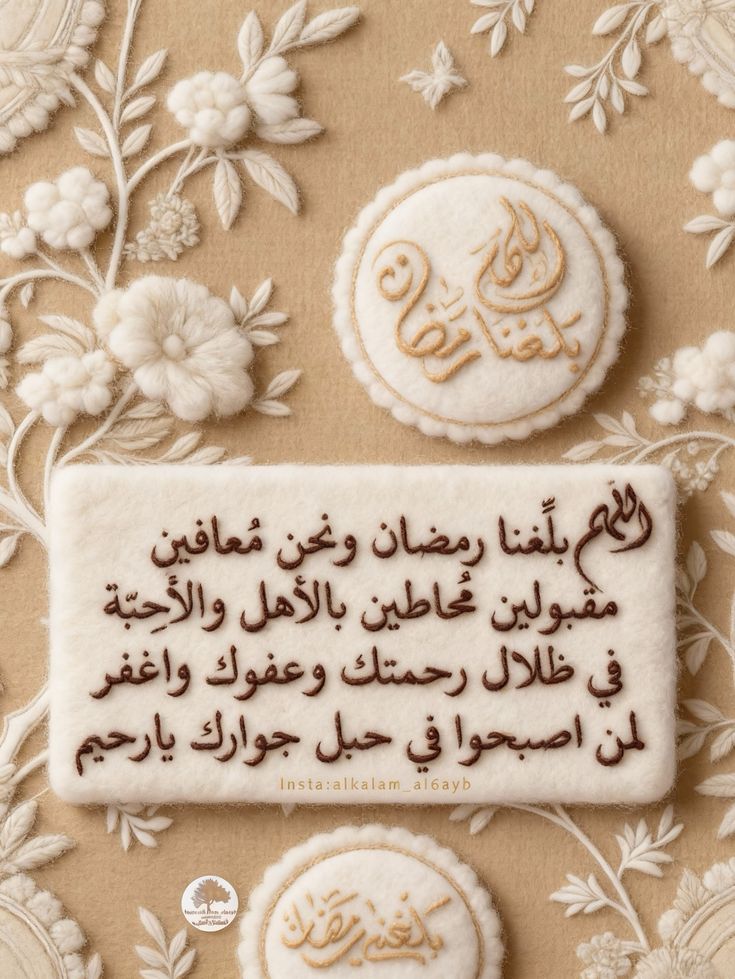 اللهم
بلغنا
رمضان
اللهم بلِّغنا رمضان ونحن مُعافين
مقبولين مُحاطين بالأهل والأَحِبّة
في ظلال رحمتك وعفوك واغفر
لمن اصبحوا في حبل جوارك يارحيم
Insta:alkalam_al6ayb
بلغني رمضان